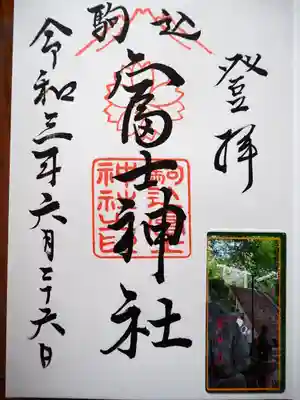 登拝
駒込
富士神社
駒込富士
神社之印
令和三年六月二十六日